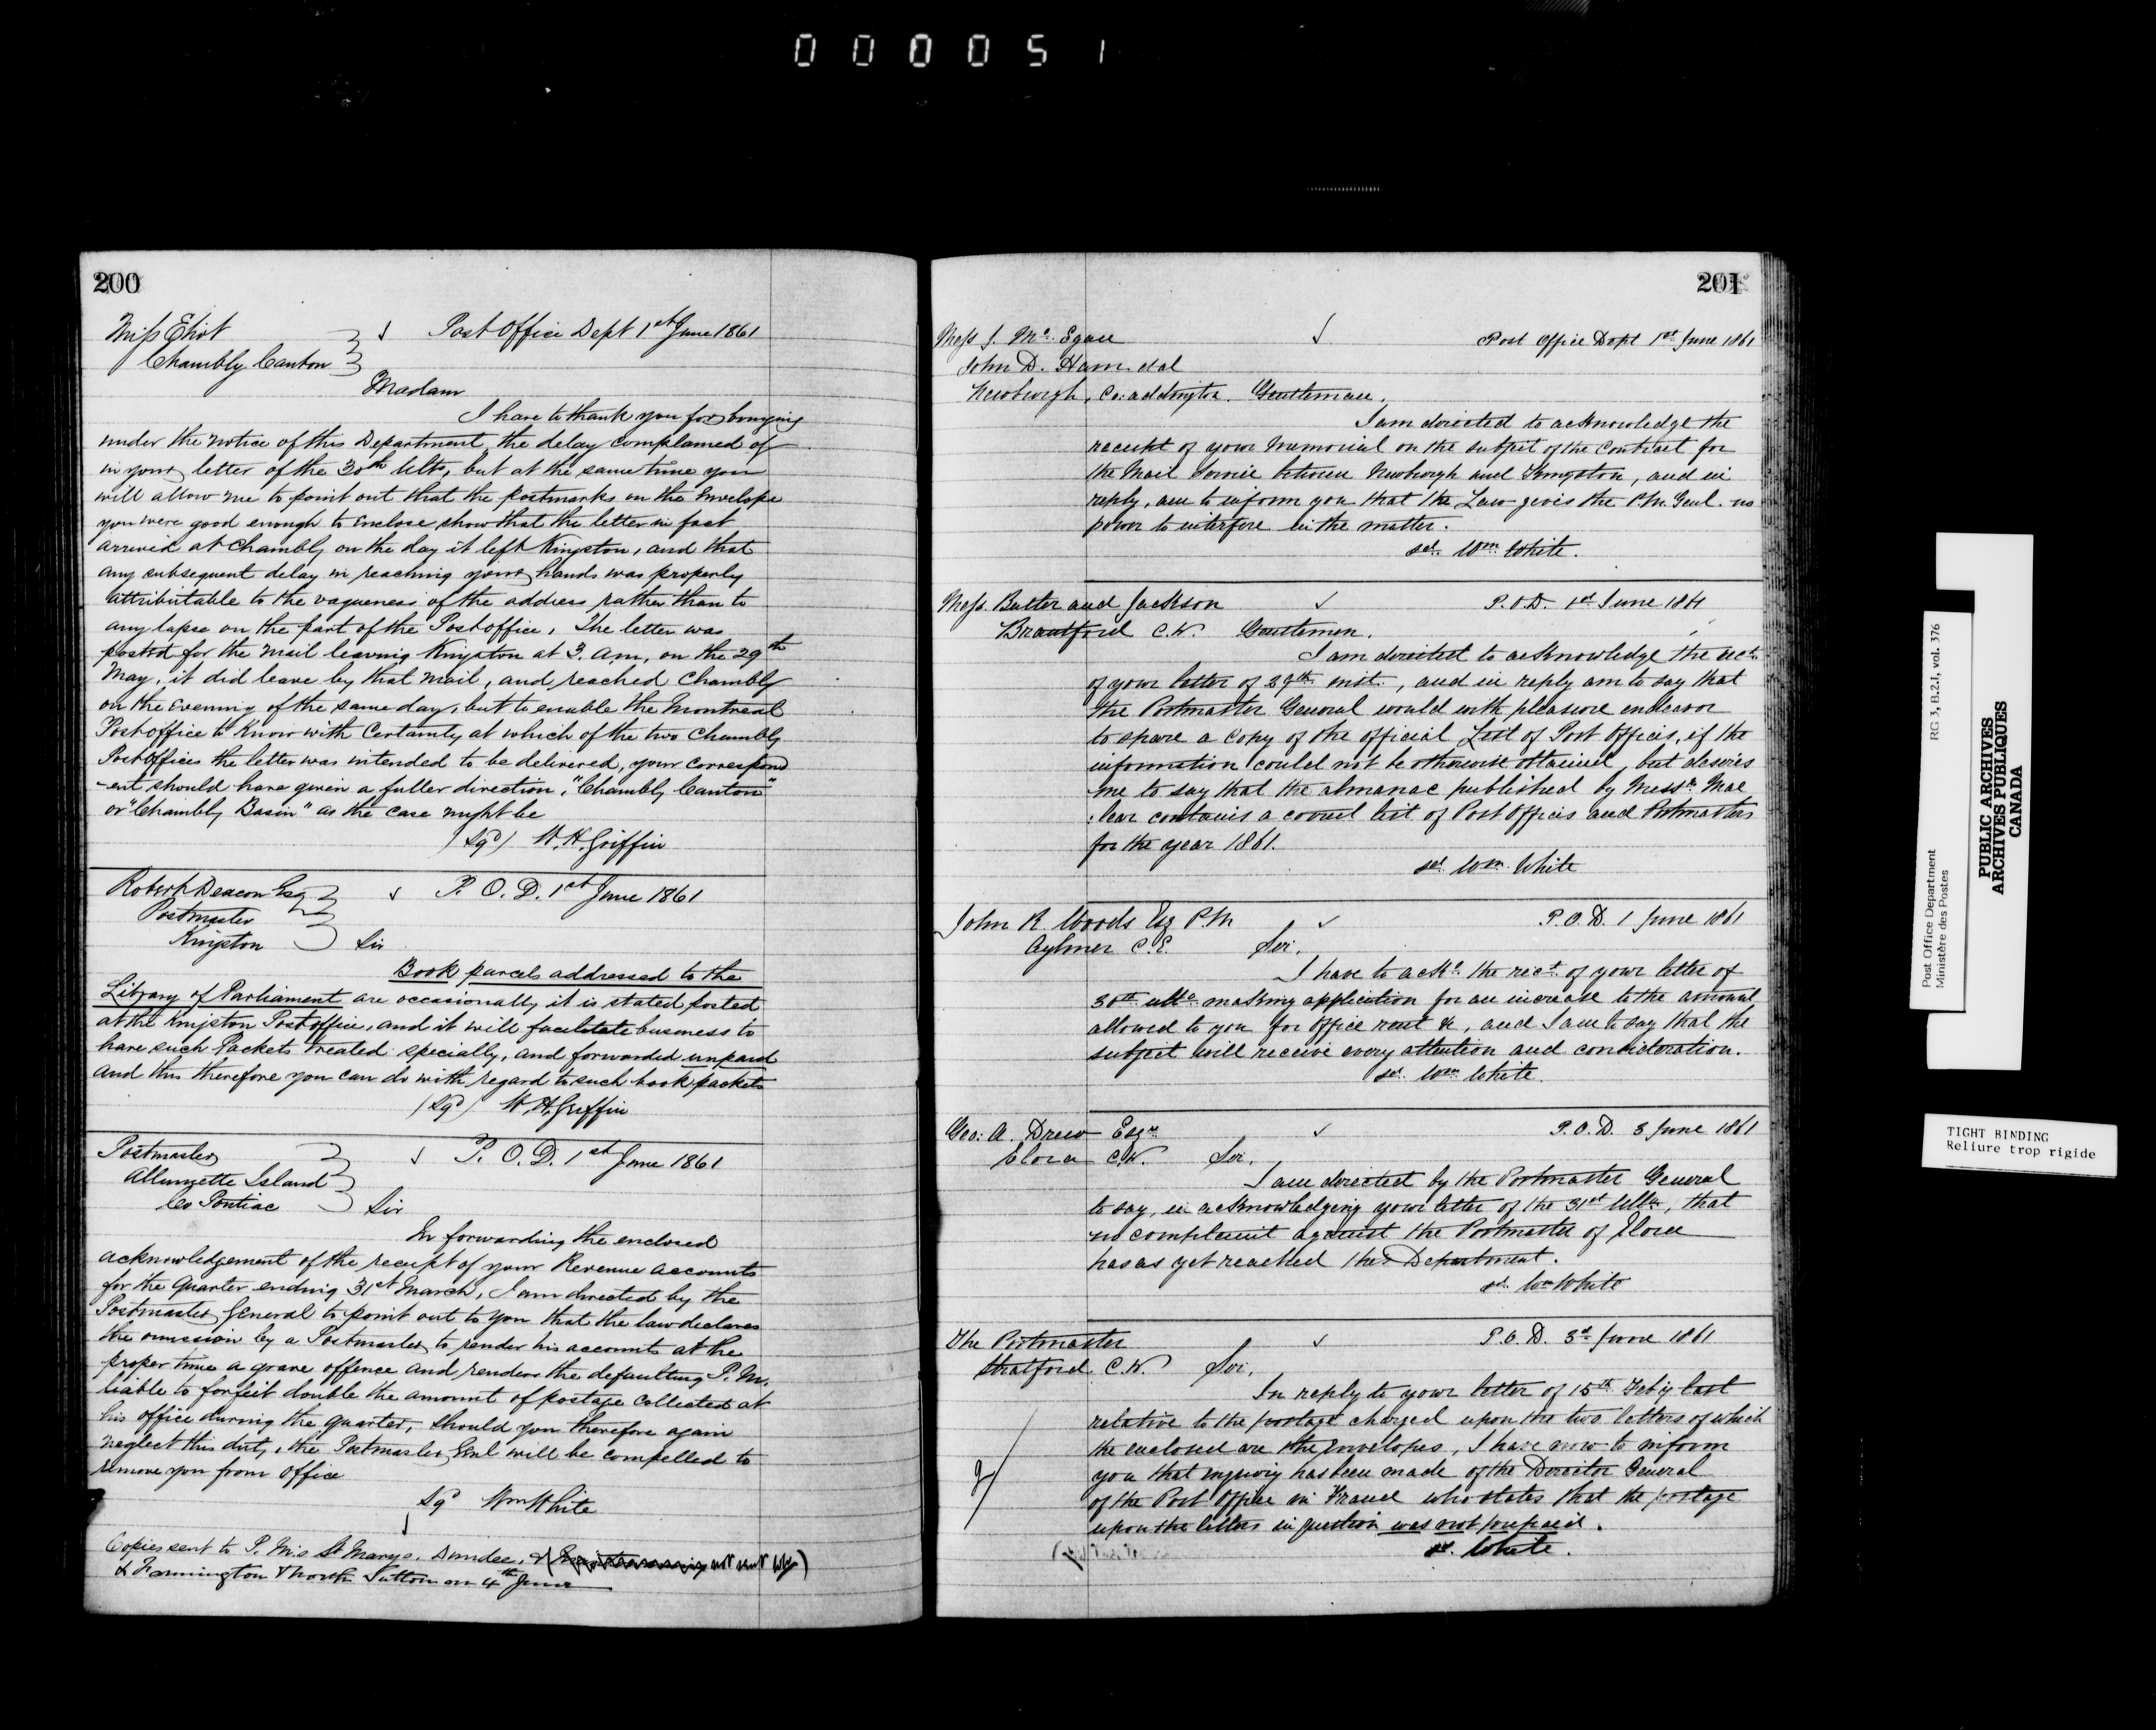 000051
200
Miss Eliot
Chambly Canton
Post Office Dept 1st June 1861
Madam
I have to thank you for bringing
under the notice of this Department, the delay complained of
in your letter of the 30th Ulto, but at the same time you
will allow me to point out that the postmarks on the Envelope
you were good enough to enclose show that the letter in fact
arrived at Chambly on the day it left Kingston, and that
any subsequent delay in reaching your hands was properly
attributable to the vagueness of the address rather than to
any lapse on the part of the Post office. The letter was
posted for the mail leaving Kingston at 3. a.m. on the 29th
May, it did leave by that mail, and reached Chambly
on the Evening of the same day, but to enable the Montreal
Post office to know with Certainty at which of the two Chambly
Post offices the letter was intended to be delivered, your correspond
-ent should have given a fuller direction, "Chambly Canton"
or "Chambly Basin" as the case might be
(Sgd) W. H. Griffin
Robert Deacon Esq
Postmaster
Kingston
P. O. D. 1st June 1861
Sir
Book parcels addressed to the
Library of Parliament are occasionally it is stated posted
at the Kingston Post office, and it will facilitate business to
have such Packets treated specially, and forwarded unpaid
and this therefore you can do with regard to such book packets
(Sgd) W. H. Griffin
Postmaster
Allumette Island
Co Pontiac
P. O. D. 1st June 1861
Sir
In forwarding the enclosed
acknowledgement of the receipt of your Revenue accounts
for the Quarter ending 31st March, I am directed by the
Postmaster General to point out to you that the law declares
the omission by a Postmaster to render his accounts at the
proper time a grave offence and renders the defaulting P. M.
liable to forfeit double the amount of postage collected at
his office during the quarter, should you therefore again
neglect this duty, the Postmaster Genl will be compelled to
remove you from office
Sgd Wm White
Copies sent to P. M's St Marys. Dundee. & ( not sent )
& Farmington & North Sutton on 4th June
201
Mess J. Mc. Egan
John D. Ham. et al
Newburgh, Co: addington. Gentlemen,
Post Office Dept 1st June 1861
I am directed to acknowledge the
receipt of your Memorial on the subject of the Contract for
the Mail Service between Newburgh and Kingston, and in
reply, am to inform you that the Law gives the P.M. Genl. no
power to interfere in the matter.
sd. Wm White.
Mess. Butler and Jackson
Brantford C.W. Gentlemen.
P.O.D. 1st June 1861
I am directed to acknowledge the rect.
of your letter of 29th inst., and in reply am to say that
the Postmaster General would with pleasure endeavor
to spare a copy of the official List of Post Offices, if the
information could not be otherwise obtained, but desires
me to say that the almanac published by Messrs Mac
lear contains a correct list of Post Offices and Postmasters
for the year 1861.
sd. Wm. White
John R. Woods Esq P.M
Aylmer C.E. Sir,
P.O.D. 1 June 1861
I have to ackn. the rect. of your letter of
30th ulto. making application for an increase to the amount
allowed to you for office rent &c, and I am to say that the
subject will receive every attention and consideration.
sd. Wm White.
Geo: A. Drew Esqr.
Elora C.W. Sir,
P.O.D. 3 June 1861
I am directed by the Postmaster General
to say, in acknowledging your letter of the 31st Ulto, that
no complaint against the Postmaster of Elora
has as yet reached the Department.
sd. Wm White
The Postmaster
Stratford C.W. Sir,
P.O.D. 3d June 1861
In reply to your letter of 15th Feb'y last
relative to the postage charged upon the two letters of which
the enclosed are the Envelopes, I have now to inform
you that inquiry has been made of the Director General
of the Post Office in France who states that the postage
upon the letters in question was not prepaid.
sd. White.
Post Office Department RG 3, B.2.I, vol. 376
Ministère des Postes
PUBLIC ARCHIVES
ARCHIVES PUBLIQUES
CANADA
TIGHT BINDING
Reliure trop rigide